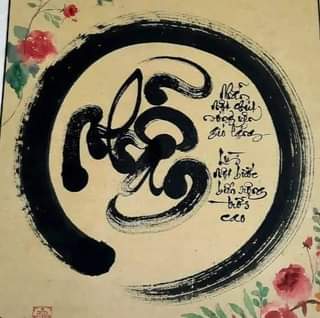 Nhẫn
Nhẫn
một chút
sóng yên
gió lặng
Lùi
một bước
biển rộng
trời
cao